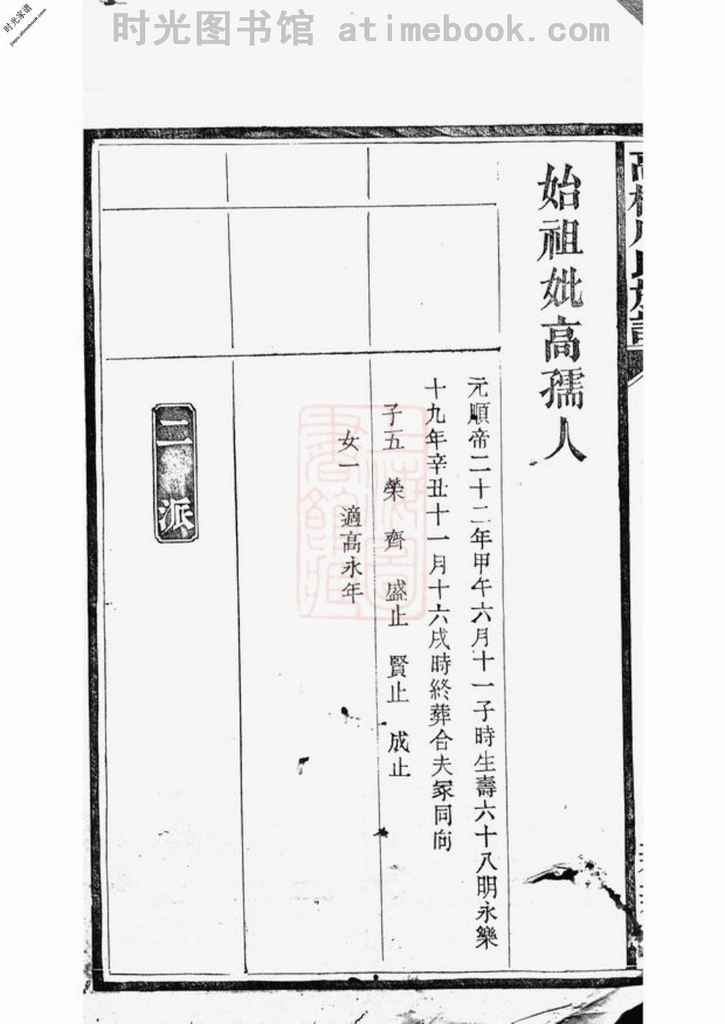 时光图书馆 atimebook.com
时光家谱
始祖妣高孺人
元順帝二十二年甲午六月十一子時生壽六十八明永樂
十九年辛丑十一月十六戌時終葬合夫冢同向
子五 榮 齊 盛止 賢止 成止
女一 適高永年
二 派